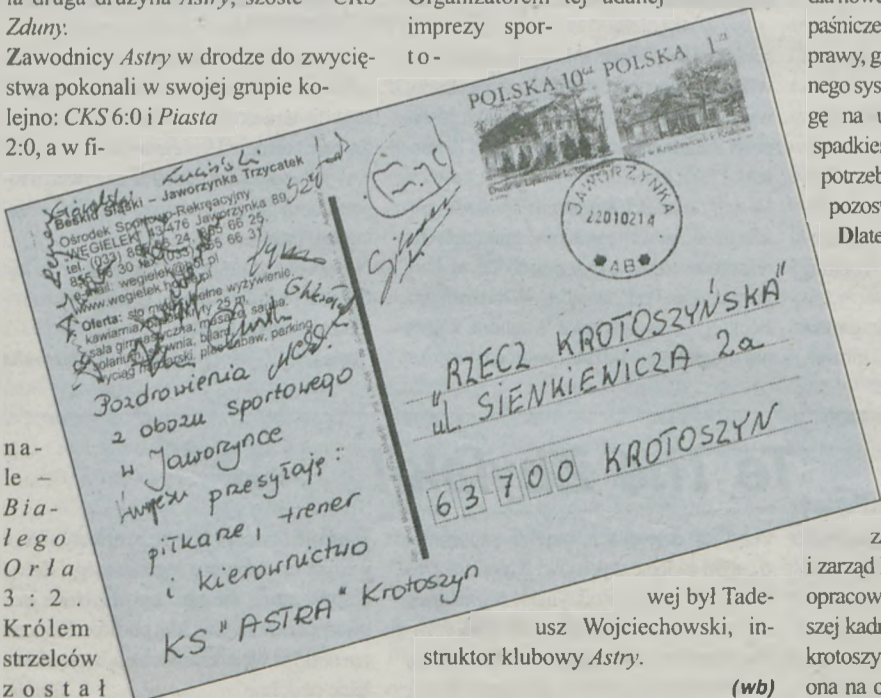 ła druga drużyna Astry, szóste – CKS
Zduny.
Zawodnicy Astry w drodze do zwycię-
stwa pokonali w swojej grupie ko-
lejno: CKS 6:0 i Piasta
2:0, a w fi-
na-
le –
Bia-
łego
Orła
3:2.
Królem
strzelców
został
Organizatorem tej udanej
imprezy spor-
to-
wej był Tade-
usz Wojciechowski, in-
struktor klubowy Astry.
(wb)
Beskid Śląski – Jaworzynka Trzycatek
Ośrodek Sportowo-Rekreacyjny
"WĘGIELEK" 43-476 Jaworzynka 89
tel. (033) 66 24, 855 66 25,
855 66 30 fax (033) 855 66 31
e-mail: wegielek@bot.pl
www.wegielek.pl
Oferta: pełne wyżywienie,
kawiarnia, kryty 25 m,
sala gimnastyczna, masaże, sauna,
solarium, siłownia, bilard,
wyciąg narciarski, plac zabaw, parking
Pozdrowienia
z obozu sportowego
w Jaworzynce
przesyłają:
piłkarze, trener
i kierownictwo
KS "ASTRA" Krotoszyn
POLSKA 10 gr POLSKA 1 zł
JAWORZYNKA
22010214
*AB*
"RZECZ KROTOSZYŃSKA"
ul. SIENKIEWICZA 2a
63700 KROTOSZYN
paśnicze
prawy, g
nego sys
gę na u
spadkie
potrzeb
pozos
Dlate
z
i zarząd
opracow
szej kadr
krotoszy
ona na o